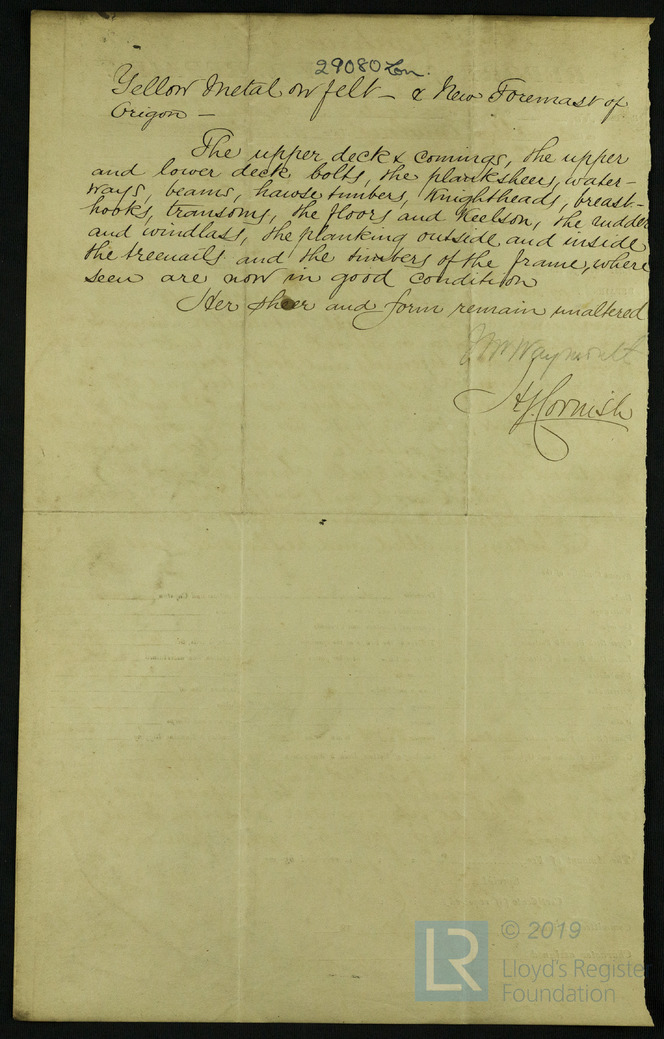 29080 Lon.
Yellow Metal on felt - & New Foremast of
Origon -
The upper deck & comings, the upper
and lower deck bolts, the planksheers, water-
ways, beams, hawse timbers, Knightheads, breast-
hooks, transoms, the floors and Keelson, the rudder
and windlass, the planking outside and inside
the treenails and the timbers of the frame, where
seen are now in good condition
Her sheer and form remain unaltered
Wm Waymouth
H J Cornish
LR © 2019
Lloyd's Register
Foundation